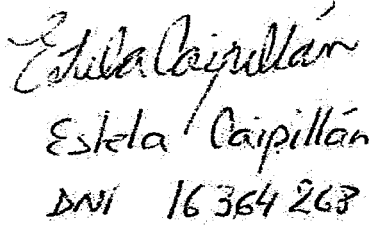 Estela Caipillán
Estela Caipillán
DNI 16 364 263